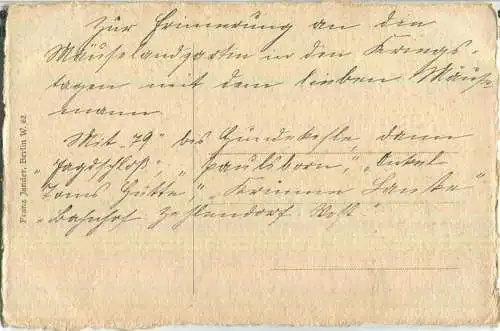 Zur Erinnerung an die
Mäuselandpartie in den Kriegs-
tagen mit dem lieben Mäuse-
mann
Mit "79" bis Hundekehle, dann
"Jagdschloß", "Paulsborn", "Onkel
Toms Hütte", "Krumme Lanke"
"Bahnhof Zehlendorf West"
Franz Jander, Berlin W. 62